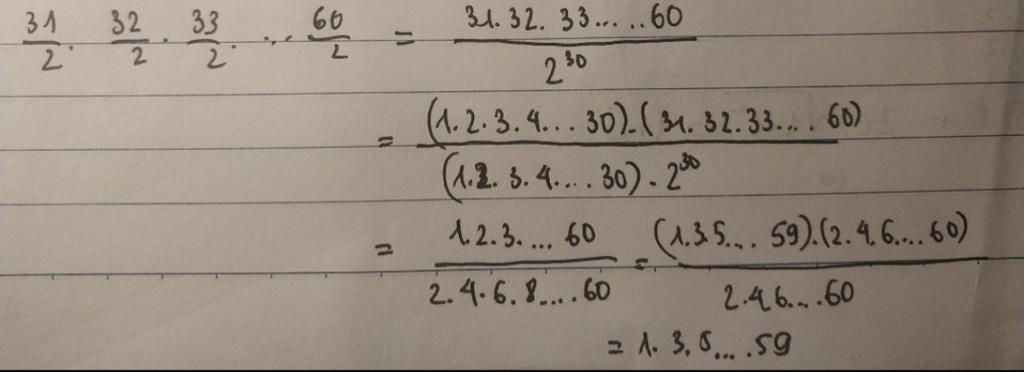 31/2 . 32/2 . 33/2 . ... 60/2 = 31.32.33.....60 / 2^30
= (1.2.3.4...30).(31.32.33....60) / (1.2.3.4....30).2^30
= 1.2.3....60 / 2.4.6.8....60 = (1.3.5...59).(2.4.6....60) / 2.4.6....60
= 1.3.5....59